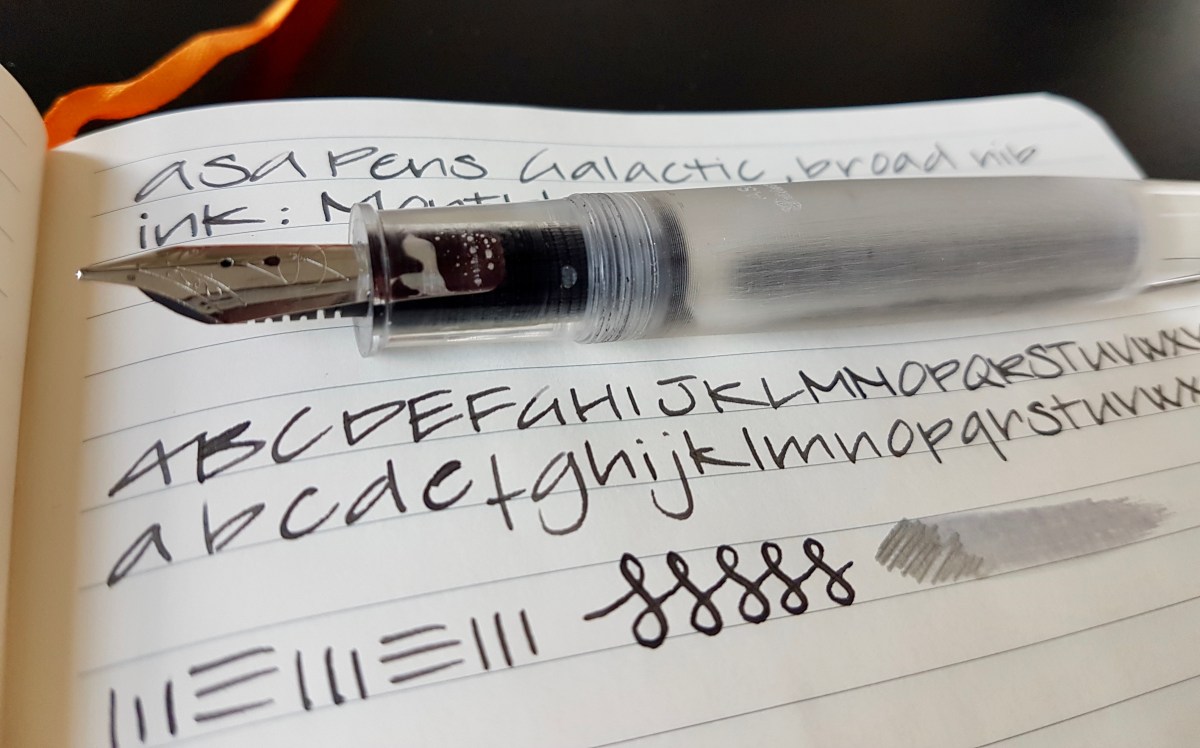 asa Pens Galactic, broad nib
ink:
ABCDEFGHIJKLMNOPQRSTUVWXY
abcdefghijklmnopqrstuvwx